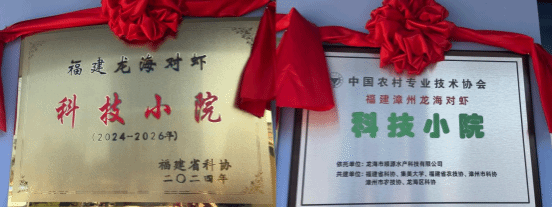 福建龙海对虾
科技小院
(2024-2026年)
福建省科协
二〇二四年
中国农村专业技术协会
福建漳州龙海对虾
科技小院
依托单位：龙海市顺源水产科技有限公司
共建单位：福建省科协、集美大学、福建省农技协、漳州市科协
漳州市农技协、龙海区科协